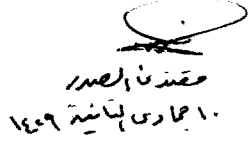 مقتدى الصدر
١٠ جمادى الثانية ١٤٠٩